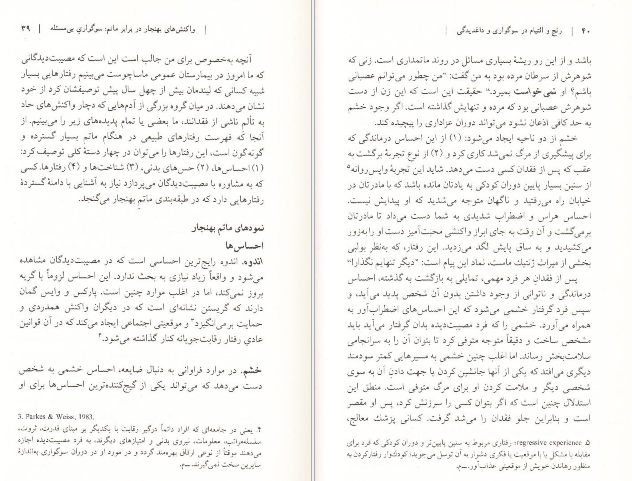 واکنش‌های بهنجار در برابر ماتم: سوگواریِ بی‌مسئله | ۳۹
آنچه به‌خصوص برای من جالب است این است که مصیبت‌دیدگانی
که ما امروز در بیمارستان عمومی ماساچوست می‌بینیم رفتارهایی بسیار
شبیه کسانی که لیندمان بیش از چهل سال پیش توصیفشان کرد از خود
نشان می‌دهند. در میان گروه بزرگی از آدم‌هایی که دچار واکنش‌های حاد
به تألم ناشی از فقدانند، ما بعضی یا تمام پدیده‌های زیر را می‌بینیم. از
آنجا که فهرست رفتارهای طبیعی در هنگام ماتم بسیار گسترده و
گونه‌گون است، این رفتارها را می‌توان در چهار دستهٔ کلی توصیف کرد:
(۱) احساس‌ها، (۲) حس‌های بدنی، (۳) شناخت‌ها و (۴) رفتارها. کسی
که به مشاوره با مصیبت‌دیدگان می‌پردازد نیاز به آشنایی با دامنهٔ گستردهٔ
رفتارهایی دارد که در طبقه‌بندی ماتم بهنجار می‌گنجد.
نمودهای ماتم بهنجار
احساس‌ها
اندوه. اندوه رایج‌ترین احساسی است که در مصیبت‌دیدگان مشاهده
می‌شود و واقعاً زیاد نیازی به بحث ندارد. این احساس لزوماً با گریه
بروز نمی‌کند، اما در اغلب موارد چنین است. پارکس و وایس گمان
دارند که گریستن نشانه‌ای است که در دیگران واکنش همدردی و
حمایت برمی‌انگیزد۳ و موقعیتی اجتماعی ایجاد می‌کند که در آن قوانین
عادیِ رفتار رقابت‌جویانه کنار گذاشته می‌شود.۴
خشم. در موارد فراوانی به دنبال ضایعه، احساس خشمی به شخص
دست می‌دهد که می‌تواند یکی از گیج‌کننده‌ترین احساس‌ها برای او
3. Parkes & Weiss, 1983.
۴. یعنی در جامعه‌ای که افراد دائماً درگیر رقابت با یکدیگر بر مبنای قدرت، ثروت،
سلسله‌مراتب، معلومات، نیروی بدنی و امتیازهای دیگرند، به فرد مصیبت‌دیده اجازه
می‌دهند موقتاً از نوعی ارفاق بهره‌مند گردد و در مورد او در دوران سوگواری به‌اندازهٔ
سایرین سخت نمی‌گیرند. ــ م.
۴۰ | رنج و التیام در سوگواری و داغدیدگی
باشد و از این رو ریشهٔ بسیاری مسائل در روند ماتمداری است. زنی که
شوهرش از سرطان مرده بود به من گفت: "من چطور می‌توانم عصبانی
باشم؟ او نمی‌خواست بمیرد." حقیقت این است که این زن از دست
شوهرش عصبانی بود که مرده و تنهایش گذاشته است. اگر وجود خشم
به حد کافی اذعان نشود می‌تواند دوران عزاداری را پیچیده کند.
خشم از دو ناحیه ایجاد می‌شود: (۱) از این احساس درماندگی که
برای پیشگیری از مرگ نمی‌شد کاری کرد و (۲) از نوع تجربهٔ برگشت به
عقب که پس از فقدان کسی دست می‌دهد. شاید این تجربهٔ واپس‌روانه۵
از سنین بسیار پایین دوران کودکی به یادتان مانده باشد که با مادرتان در
خیابان راه می‌رفتید و ناگهان متوجه می‌شدید که او پیدایش نیست.
احساس هراس و اضطراب شدیدی به شما دست می‌داد تا مادرتان
برمی‌گشت و آن وقت به جای ابراز واکنشی محبت‌آمیز دست او را به‌زور
می‌کشیدید و به ساق پایش لگد می‌زدید. این رفتار، که به‌نظر بولبی
بخشی از میراث ژنتیک ماست، نماد این پیام است: "دیگر تنهایم نگذار!"
پس از فقدانِ هر فرد مهمی، تمایلی به بازگشت به گذشته، احساس
درماندگی و ناتوانی از وجود داشتن بدون آن شخص پدید می‌آید، و
سپس فرد گرفتار خشمی می‌شود که این احساس‌های اضطراب‌آور به
همراه می‌آورد. خشمی را که فرد مصیبت‌دیده بدان گرفتار می‌آید باید
مشخص ساخت و دقیقاً متوجه متوفی کرد تا بتوان آن را به سرانجامی
سلامت‌بخش رساند. اما اغلب چنین خشمی به مسیرهایی کمتر سودمند
دیگری می‌افتد که یکی از آنها جانشین کردن یا جهت دادن آن به سوی
شخصی دیگر و ملامت کردن او برای مرگ متوفی است. منطق این
استدلال چنین است که اگر بتوان کسی را سرزنش کرد، پس او مقصر
است و بنابراین جلو فقدان را می‌شد گرفت. کسانی پزشک معالج،
۵. regressive experience: رفتاری مربوط به سنین پایین‌تر و دوران کودکی که فرد برای
مقابله با مشکل یا با موقعیت یا فکری دشوار به آن توسل می‌جوید؛ کودک‌وار رفتارکردن به
منظور رهاندن خویش از موقعیتی عذاب‌آور. ــ م.